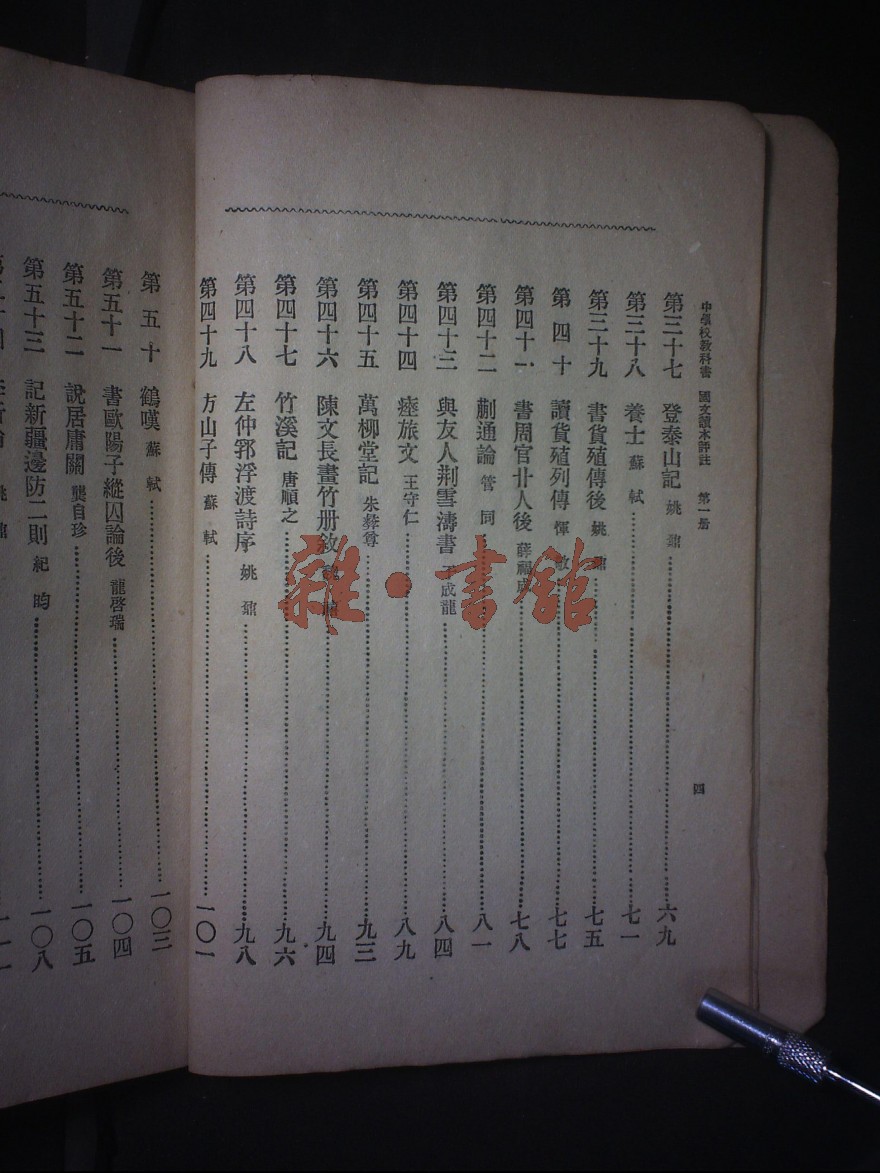 中學校教科書 國文讀本評註 第一册
四
第三十七 登泰山記 姚鼐 六九
第三十八 養士 蘇軾 七一
第三十九 書貨殖傳後 姚鼐 七五
第四十 讀貨殖列傳 惲敬 七七
第四十一 書周官丱人後 薛福成 七八
第四十二 蒯通論 管同 八一
第四十三 與友人荆雪濤書 于成龍 八四
第四十四 瘞旅文 王守仁 八九
第四十五 萬柳堂記 朱彝尊 九三
第四十六 陳文長畫竹册敘 九四
第四十七 竹溪記 唐順之 九六
第四十八 左仲郛浮渡詩序 姚鼐 九八
第四十九 方山子傳 蘇軾 一〇一
第五十 鶴嘆 蘇軾 一〇三
第五十一 書歐陽子縱囚論後 龍啓瑞 一〇四
第五十二 說居庸關 龔自珍 一〇五
第五十三 記新疆邊防二則 紀昀 一〇八
雜·書館